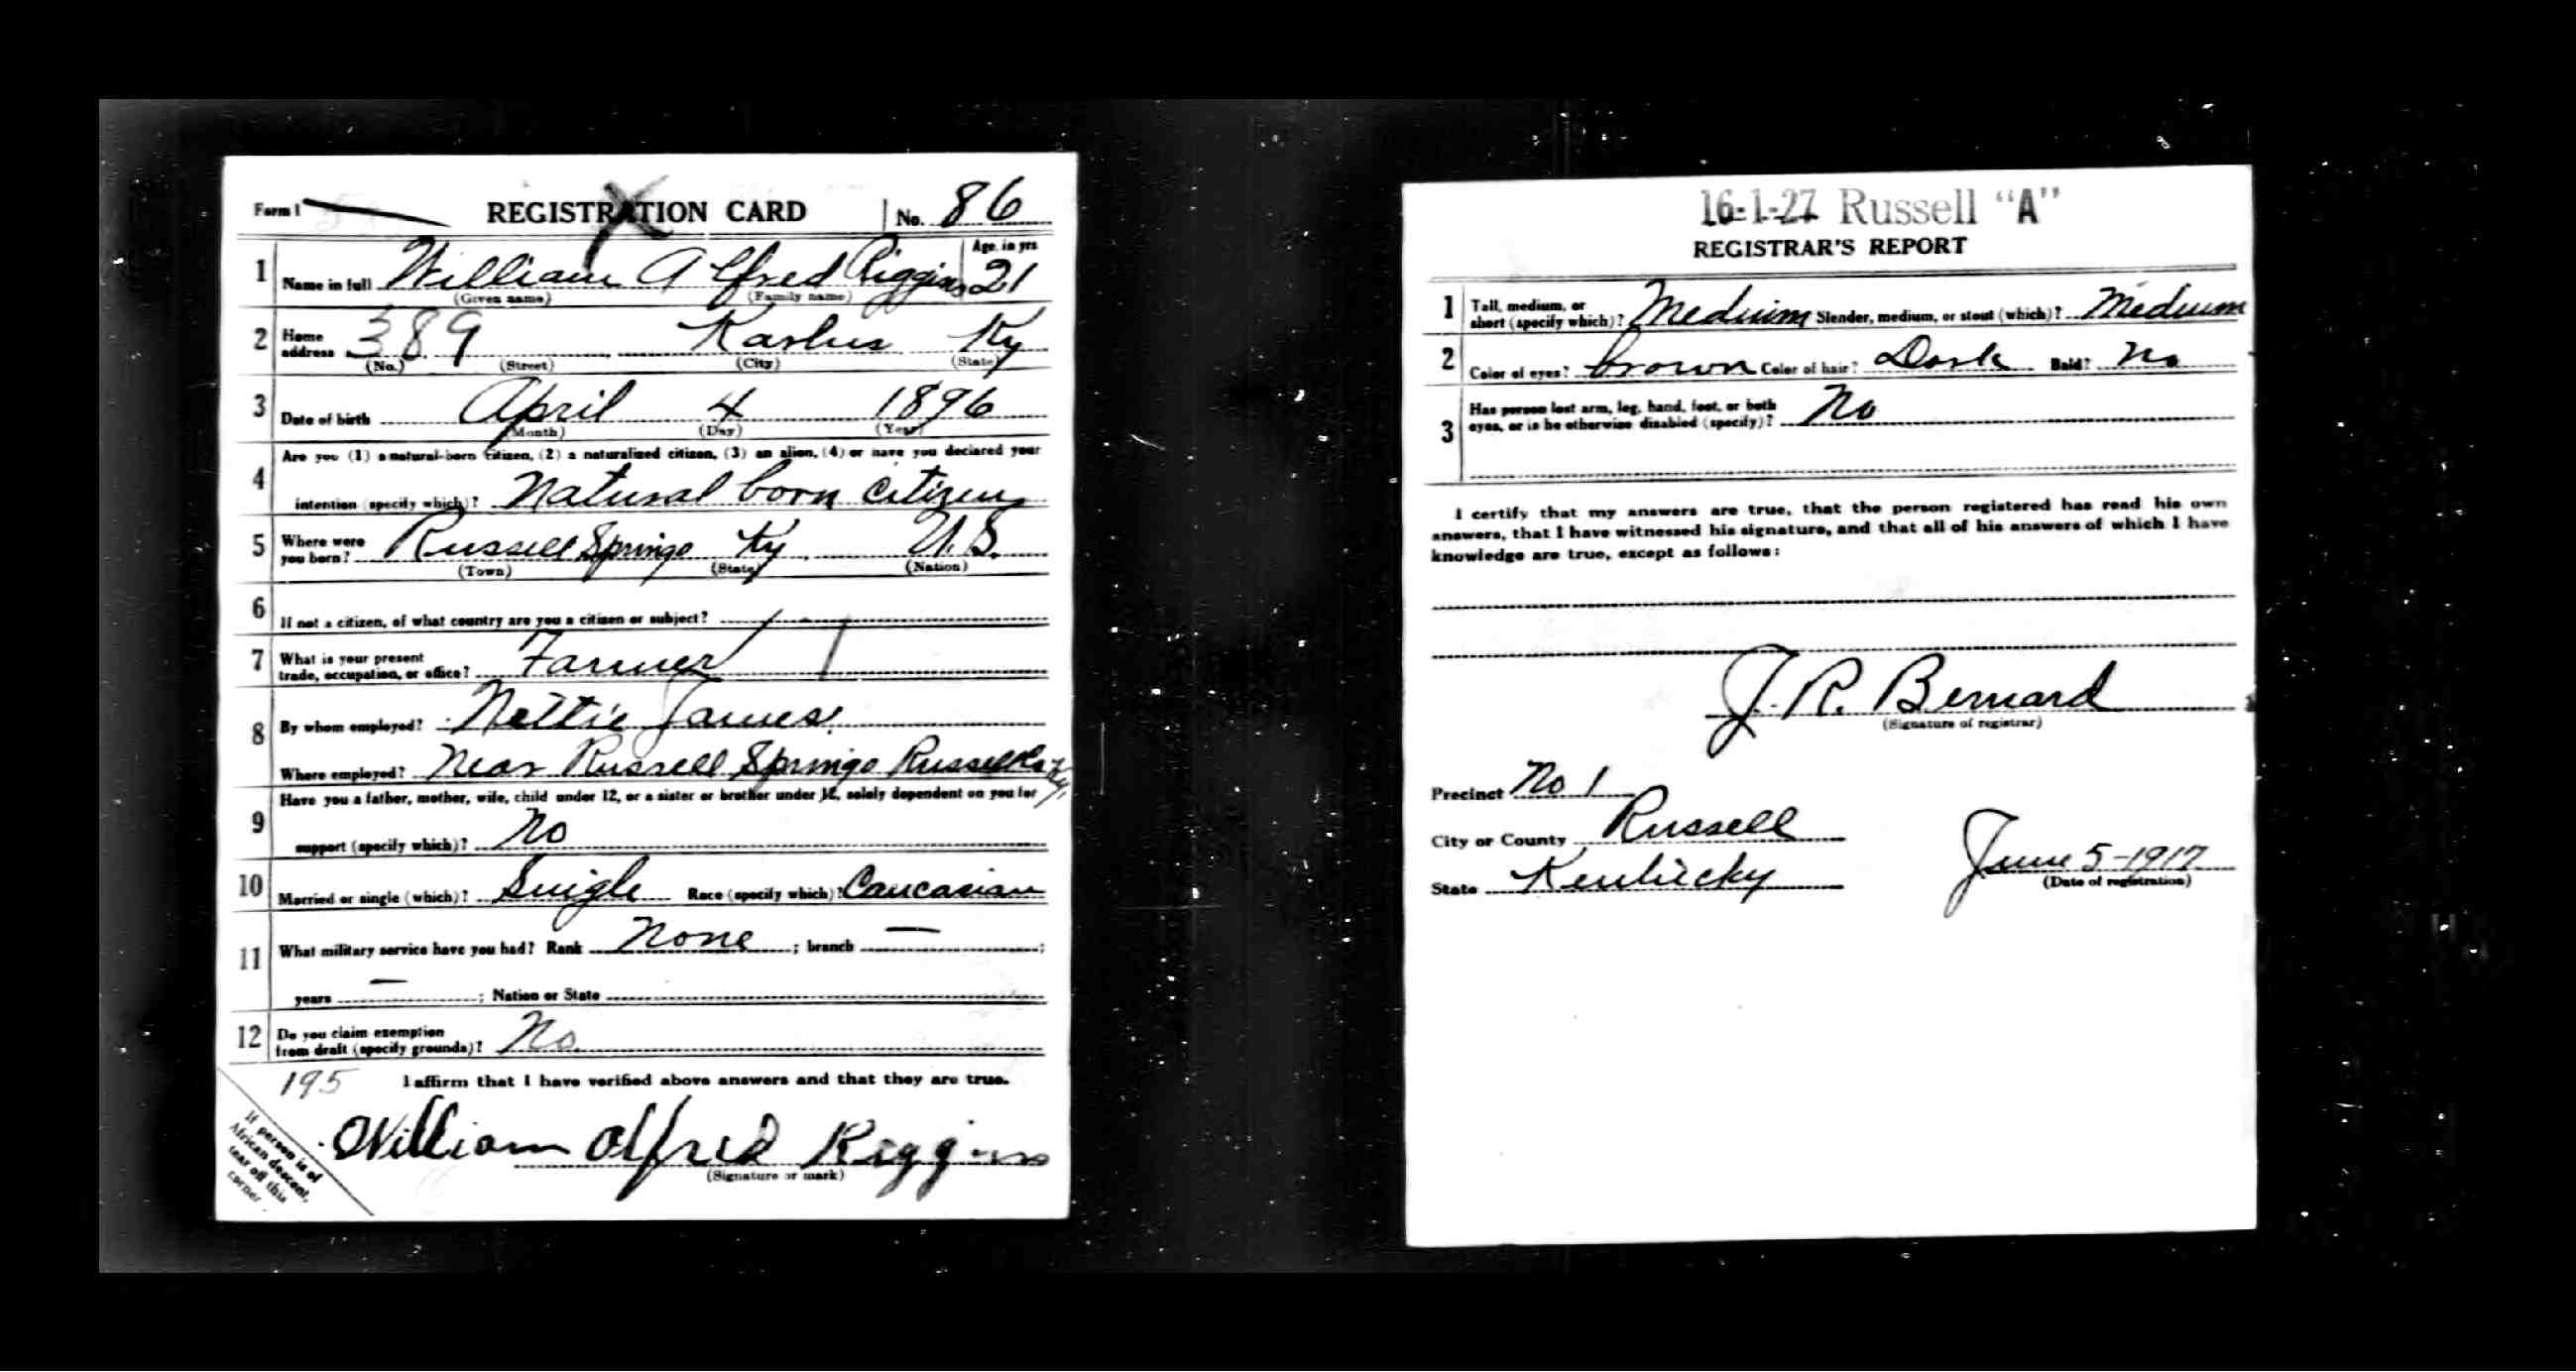 Form 1 REGISTRATION CARD No. 86
1 Name in full William Alfred Riggins Age, in yrs 21
(Given name) (Family name)
2 Home address 389 Karlus Ky
(No.) (Street) (City) (State)
3 Date of birth April 4 1896
(Month) (Day) (Year)
4 Are you (1) a natural-born citizen, (2) a naturalized citizen, (3) an alien, (4) or have you declared your
intention (specify which)? Natural born citizen
5 Where were you born? Russell Springs Ky U.S.
(Town) (State) (Nation)
6 If not a citizen, of what country are you a citizen or subject?
7 What is your present
trade, occupation, or office? Farmer
8 By whom employed? Nettie James
Where employed? Near Russell Springs Russell Co Ky
9 Have you a father, mother, wife, child under 12, or a sister or brother under 12, solely dependent on you for
support (specify which)? No
10 Married or single (which)? Single Race (specify which)? Caucasian
11 What military service have you had? Rank None ; branch — ;
years — ; Nation or State
12 Do you claim exemption
from draft (specify grounds)? No
195 I affirm that I have verified above answers and that they are true.
William Alfred Riggins
(Signature or mark)
If person is of
African descent,
tear off this
corner
16-1-27 Russell "A"
REGISTRAR'S REPORT
1 Tall, medium, or
short (specify which)? Medium Slender, medium, or stout (which)? Medium
2 Color of eyes? brown Color of hair? Dark Bald? No
3 Has person lost arm, leg, hand, foot, or both
eyes, or is he otherwise disabled (specify)? No
I certify that my answers are true, that the person registered has read his own
answers, that I have witnessed his signature, and that all of his answers of which I have
knowledge are true, except as follows:
J. R. Bernard
(Signature of registrar)
Precinct No 1
City or County Russell
State Kentucky June 5-1917
(Date of registration)